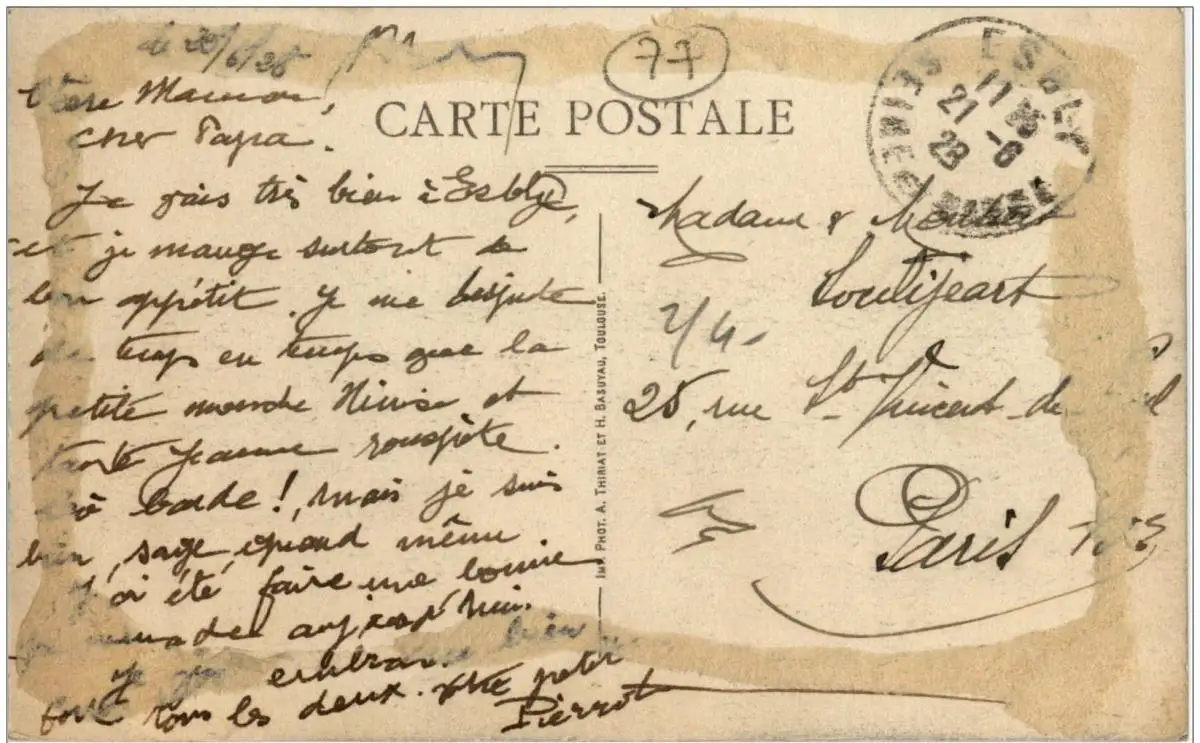 le 20/6/28
77
Chère Maman,
cher Papa.
CARTE POSTALE
Je vais très bien à Esbly,
et je mange surtout de
bon appétit. Je me
de temps en temps que la
petite Ninise et
tante Jeanne rouspète.
barde! mais je suis
bien sage quand même
J'ai été faire une bonne
promenade aujourd'hui.
Je vous embrasse bien
fort tous les deux. votre petit
Pierrot
IMP. PHOT. A. THIRIAT ET H. BASUYAU, TOULOUSE.
ESBLY
11
21 -6
28
SEINE ET MARNE
Madame & Monsieur
2/4
25, rue St Vincent de
Paris